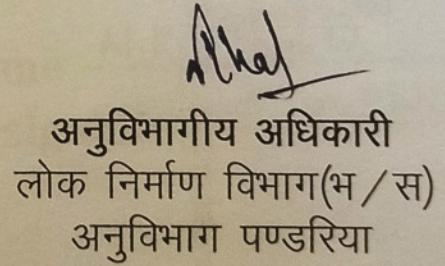 अनुविभागीय अधिकारी
लोक निर्माण विभाग(भ/स)
अनुविभाग पण्डरिया